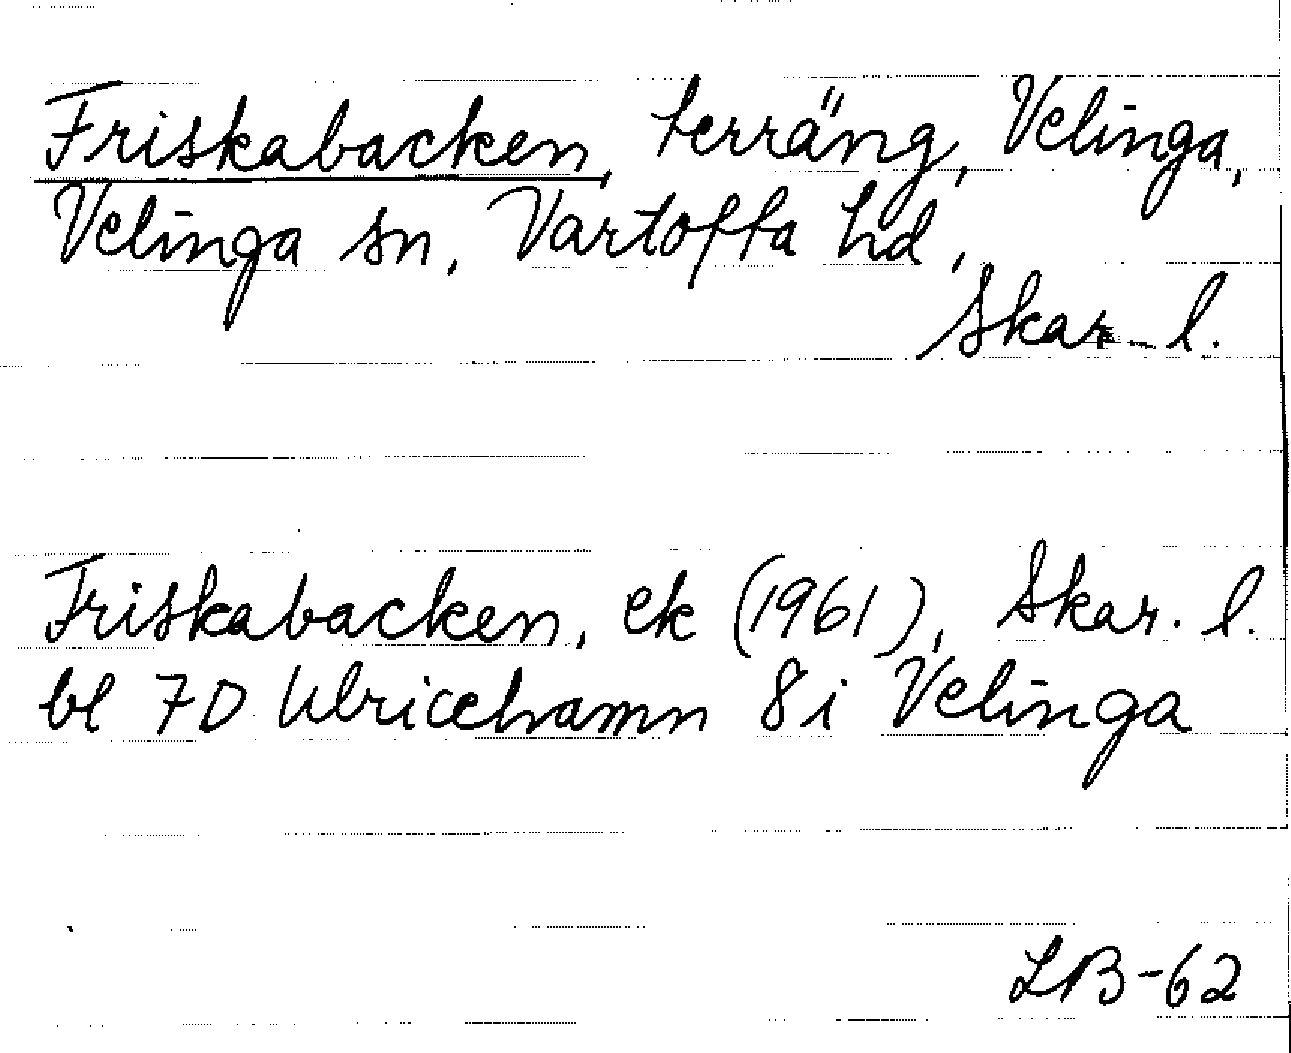 Friskabacken, terräng, Velinga,
Velinga sn, Vartofta hd,
Skar. l.
Friskabacken, ek (1961), Skar. l.
bl 7D Ulricehamn 8i Velinga
LB-62